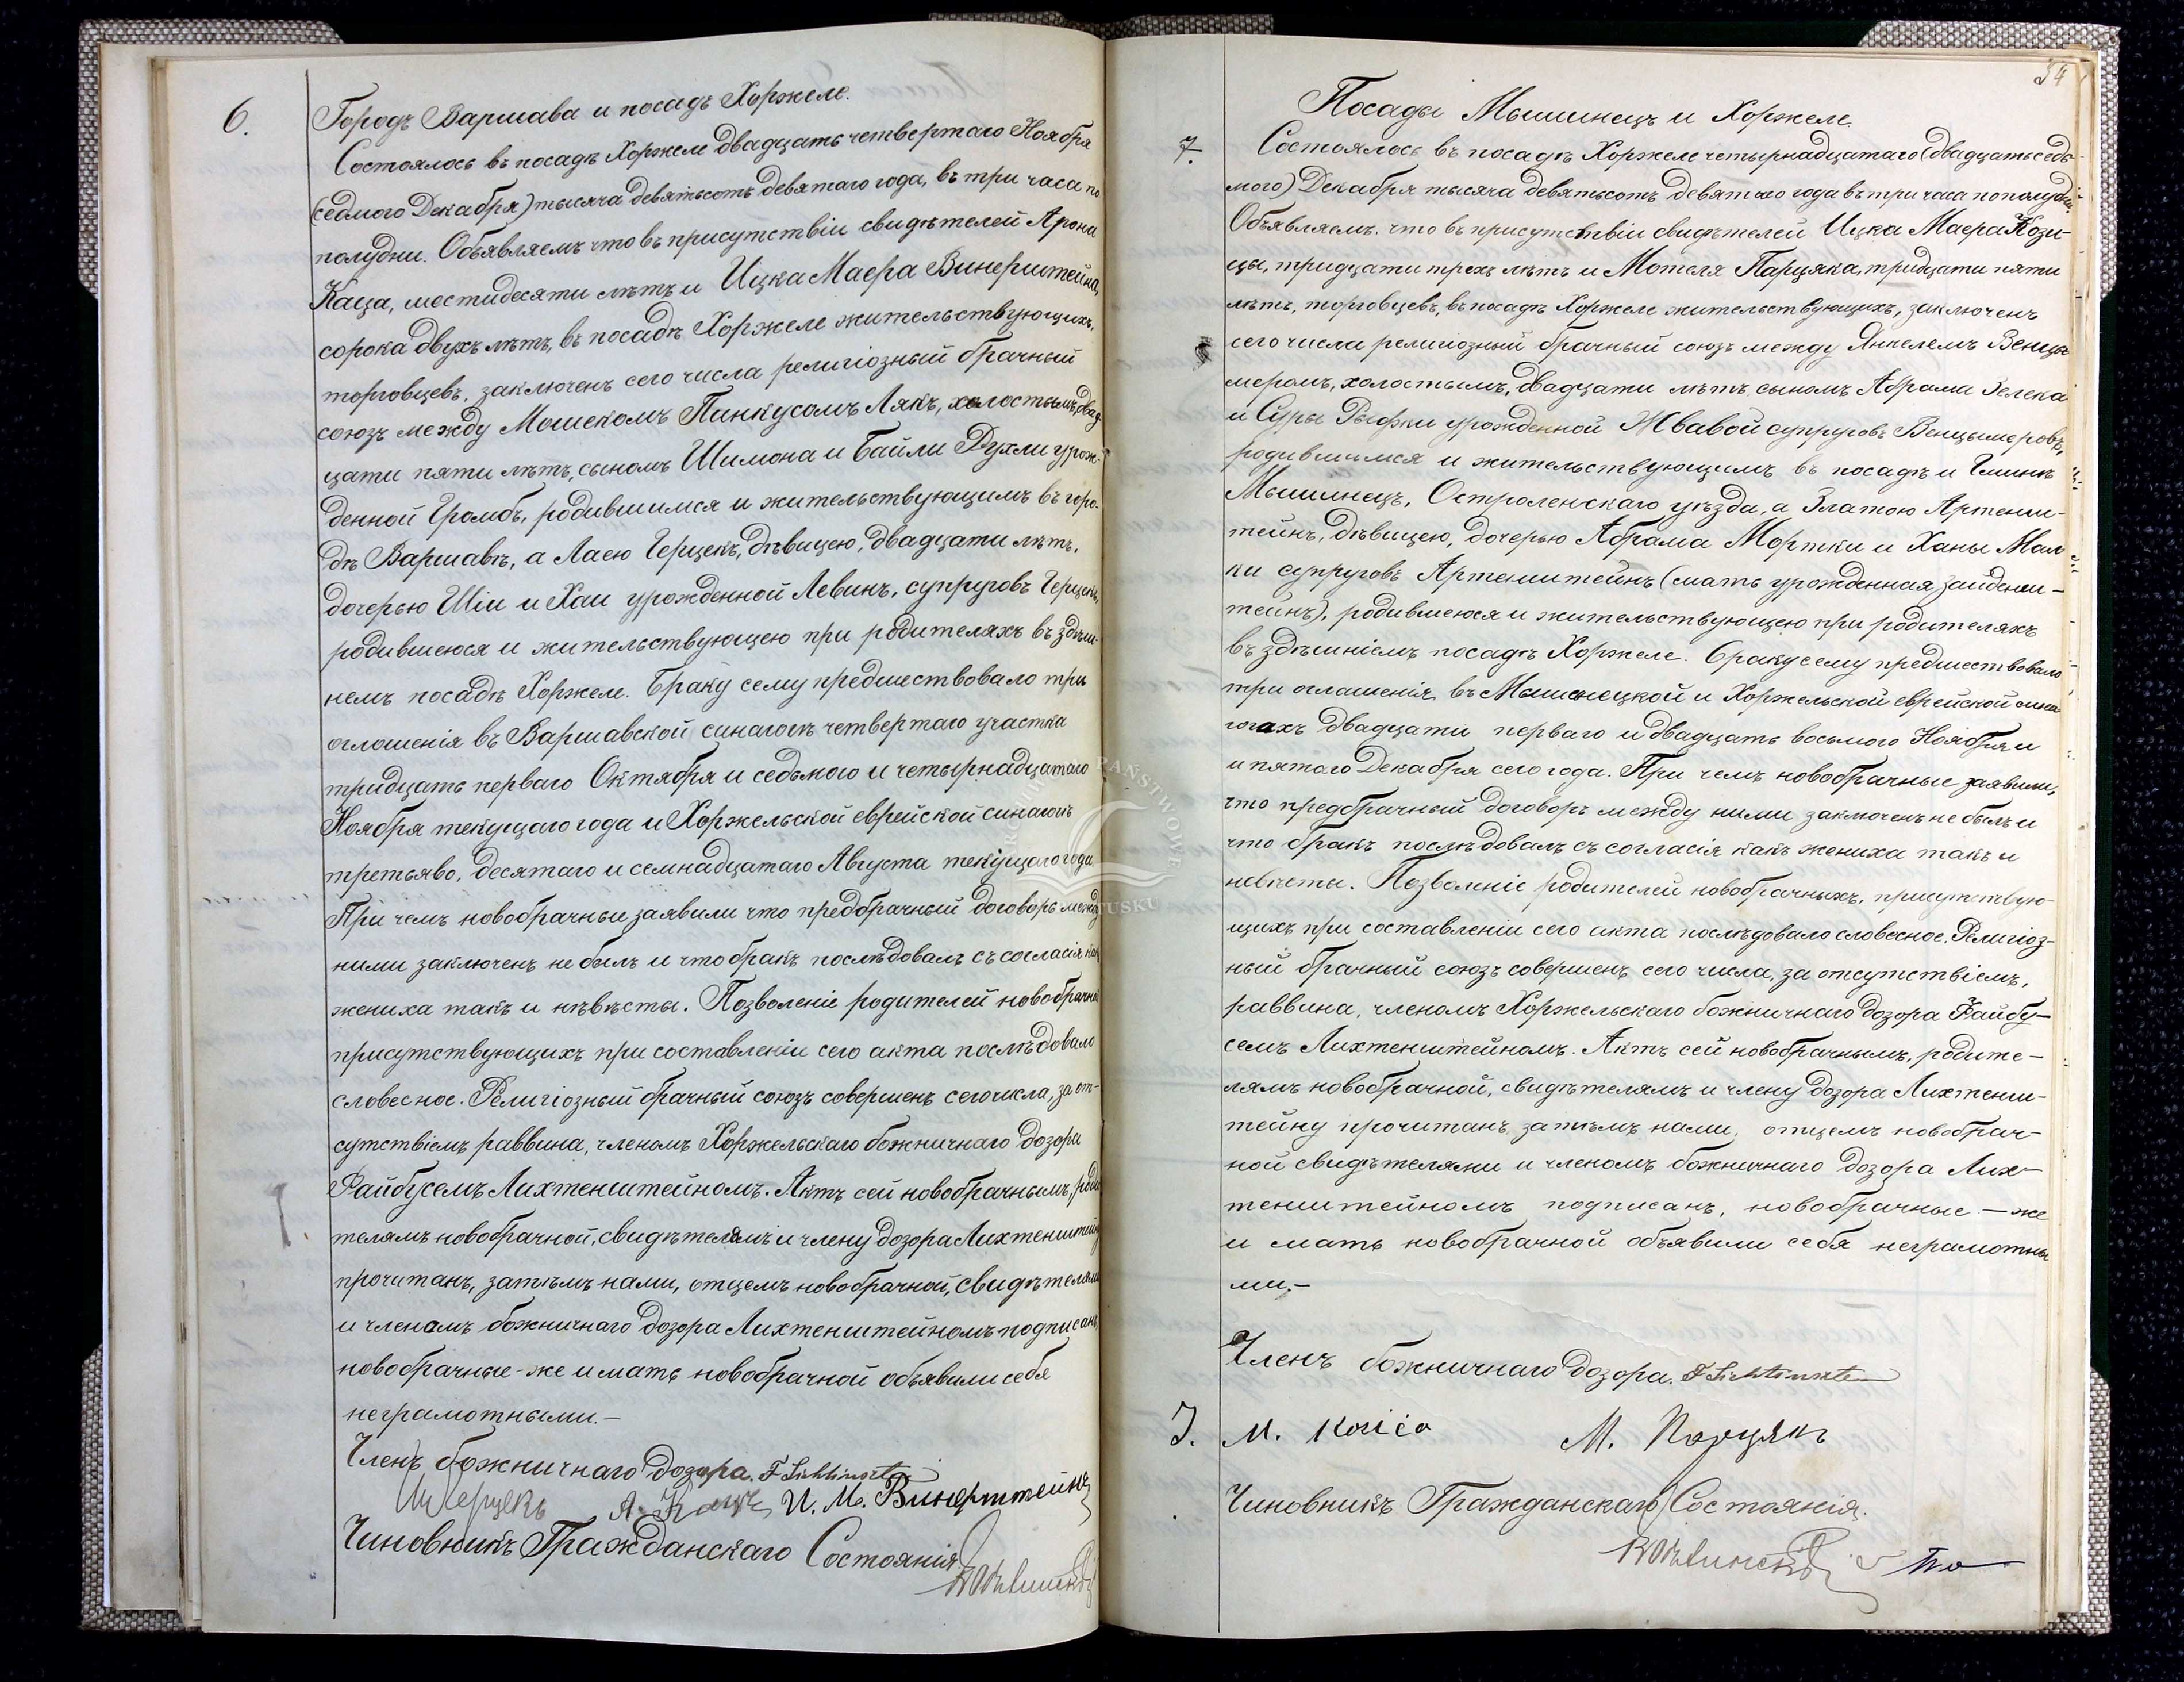 6.
Городъ Варшава и посадъ Хоржеле.
Состоялось въ посадѣ Хоржеле двадцать четвертаго Ноября
(седмого Декабря) тысяча девятьсотъ девятаго года, въ три часа по
полудни. Объявляемъ что въ присутствіи свидѣтелей Арона
Каца, шестидесяти лѣтъ и Ицка Маера Винерштейна,
сорока двухъ лѣтъ, въ посадѣ Хоржеле жительствующихъ,
торговцевъ, заключенъ сего числа религіозный брачный
союзъ между Мошекомъ Пинкусомъ Лякъ, холостымъ, двад-
цати пяти лѣтъ, сыномъ Шимона и Байли Рухли урож-
денной Громбъ, родившимся и жительствующимъ въ горо-
дѣ Варшавѣ, а Лаею Герцекъ, дѣвицею, двадцати лѣтъ,
дочерью Шіи и Хаи урожденной Левинъ, супруговъ Герцекъ,
родившеюся и жительствующею при родителяхъ въ здѣш-
немъ посадѣ Хоржеле. Браку сему предшествовало три
оглошенія въ Варшавской синагогѣ четвертаго участка
тридцать перваго Октября и седьмого и четырнадцатаго
Ноября текущаго года и Хоржельской еврейской синагогѣ
третьяво, десятаго и семнадцатаго Августа текущаго года
При чемъ новобрачные заявили что предбрачный договоръ между
ними заключенъ не былъ и что бракъ послѣдовалъ съ согласія какъ
жениха такъ и нѣвѣсты. Позволеніе родителей новобрачной
присутствующихъ при составленіи сего акта послѣдовало
словесное. Религіозный брачный союзъ совершенъ сего числа, за от-
сутствіемъ раввина, членомъ Хоржельскаго божничнаго дозора
Файбусемъ Лихтенштейномъ. Актъ сей новобрачнымъ, роди-
телямъ новобрачной, свидѣтелямъ и члену дозора Лихтенштейну
прочитанъ, затѣмъ нами, отцемъ новобрачной, свидѣтелями
и членомъ божничнаго дозора Лихтенштейномъ подписанъ,
новобрачные-же и мать новобрачной объявили себя
неграмотными.-
Членъ божничнаго дозора. F Lichtinszte
Ш Герцекъ А. Кацъ И. М. Винерштейнъ
Чиновникъ Гражданскаго Состоянія
54
Посады Мышинецъ и Хоржеле.
7.
Состоялось въ посадѣ Хоржеле четырнадцатаго (двадцать седь-
мого) Декабря тысяча девятьсотъ девятаго года въ три часа пополудни.
Объявляемъ, что въ присутствіи свидѣтелей Ицка Маера Кози-
цы, тридцати трехъ лѣтъ и Мотеля Парцяка, тридцати пяти
лѣтъ, торговцевъ, въ посадѣ Хоржеле жительствующихъ, заключенъ
сего числа религіозный брачный союзъ между Янкелемъ Венцы-
меромъ, холостымъ, двадцати лѣтъ, сыномъ Абрама Зелека
и Суры Рывки урожденной Жвавой супруговъ Венцымеровъ,
родившимся и жительствующимъ въ посадѣ и гминѣ
Мышинецъ, Остроленскаго уѣзда, а Златою Артенш-
тейнъ, дѣвицею, дочерью Абрама Мортки и Ханы Мал-
ки супруговъ Артенштейнъ (мать урожденная Зайденш-
тейнъ), родившеюся и жительствующею при родителяхъ
въ здѣшніемъ посадѣ Хоржеле. Браку сему предшествовало
три оглашенія въ Мышинецкой и Хоржельской еврейской сина
гогахъ двадцати перваго и двадцать восьмого Ноября и
и пятого Декабря сего года. При чемъ новобрачные заявили,
что предбрачный договоръ между ними заключенъ не былъ и
что бракъ послѣдовалъ съ согласія какъ жениха такъ и
невѣсты. Позволніе родителей новобрачныхъ, присутствую-
щихъ при составленіи сего акта послѣдовало словесное. Религіоз-
ный брачный союзъ совершенъ сего числа, за отсутствіемъ,
раввина, членомъ Хоржельскаго божничнаго дозора Файбу-
семъ Лихтенштейномъ. Актъ сей новобрачнымъ, родите-
лямъ новобрачной, свидѣтелямъ и члену дозора Лихтенш-
тейну прочитанъ, затѣмъ нами, отцемъ новобрач-
ной свидѣтелями и членомъ божничнаго дозора Лих-
тенштейномъ подписанъ, новобрачные-же
и мать новобрачной объявили себя неграмотны
ми.-
Членъ божничнаго дозора. F Lichtinszte
М. Парцякъ
Чиновникъ Гражданскаго Состоянія.